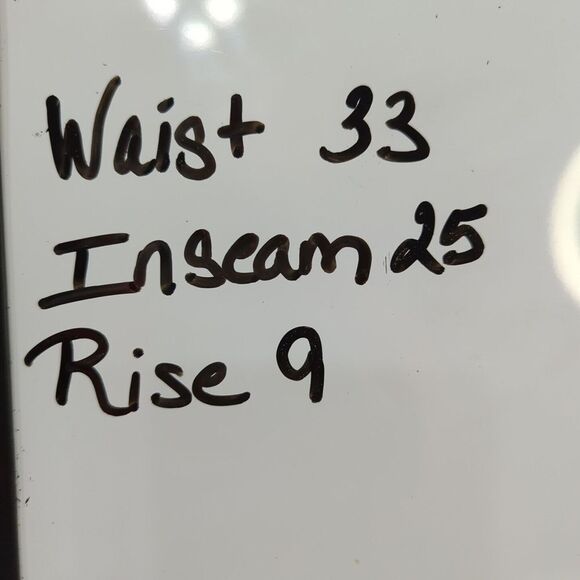 Waist 33
Inseam 25
Rise 9